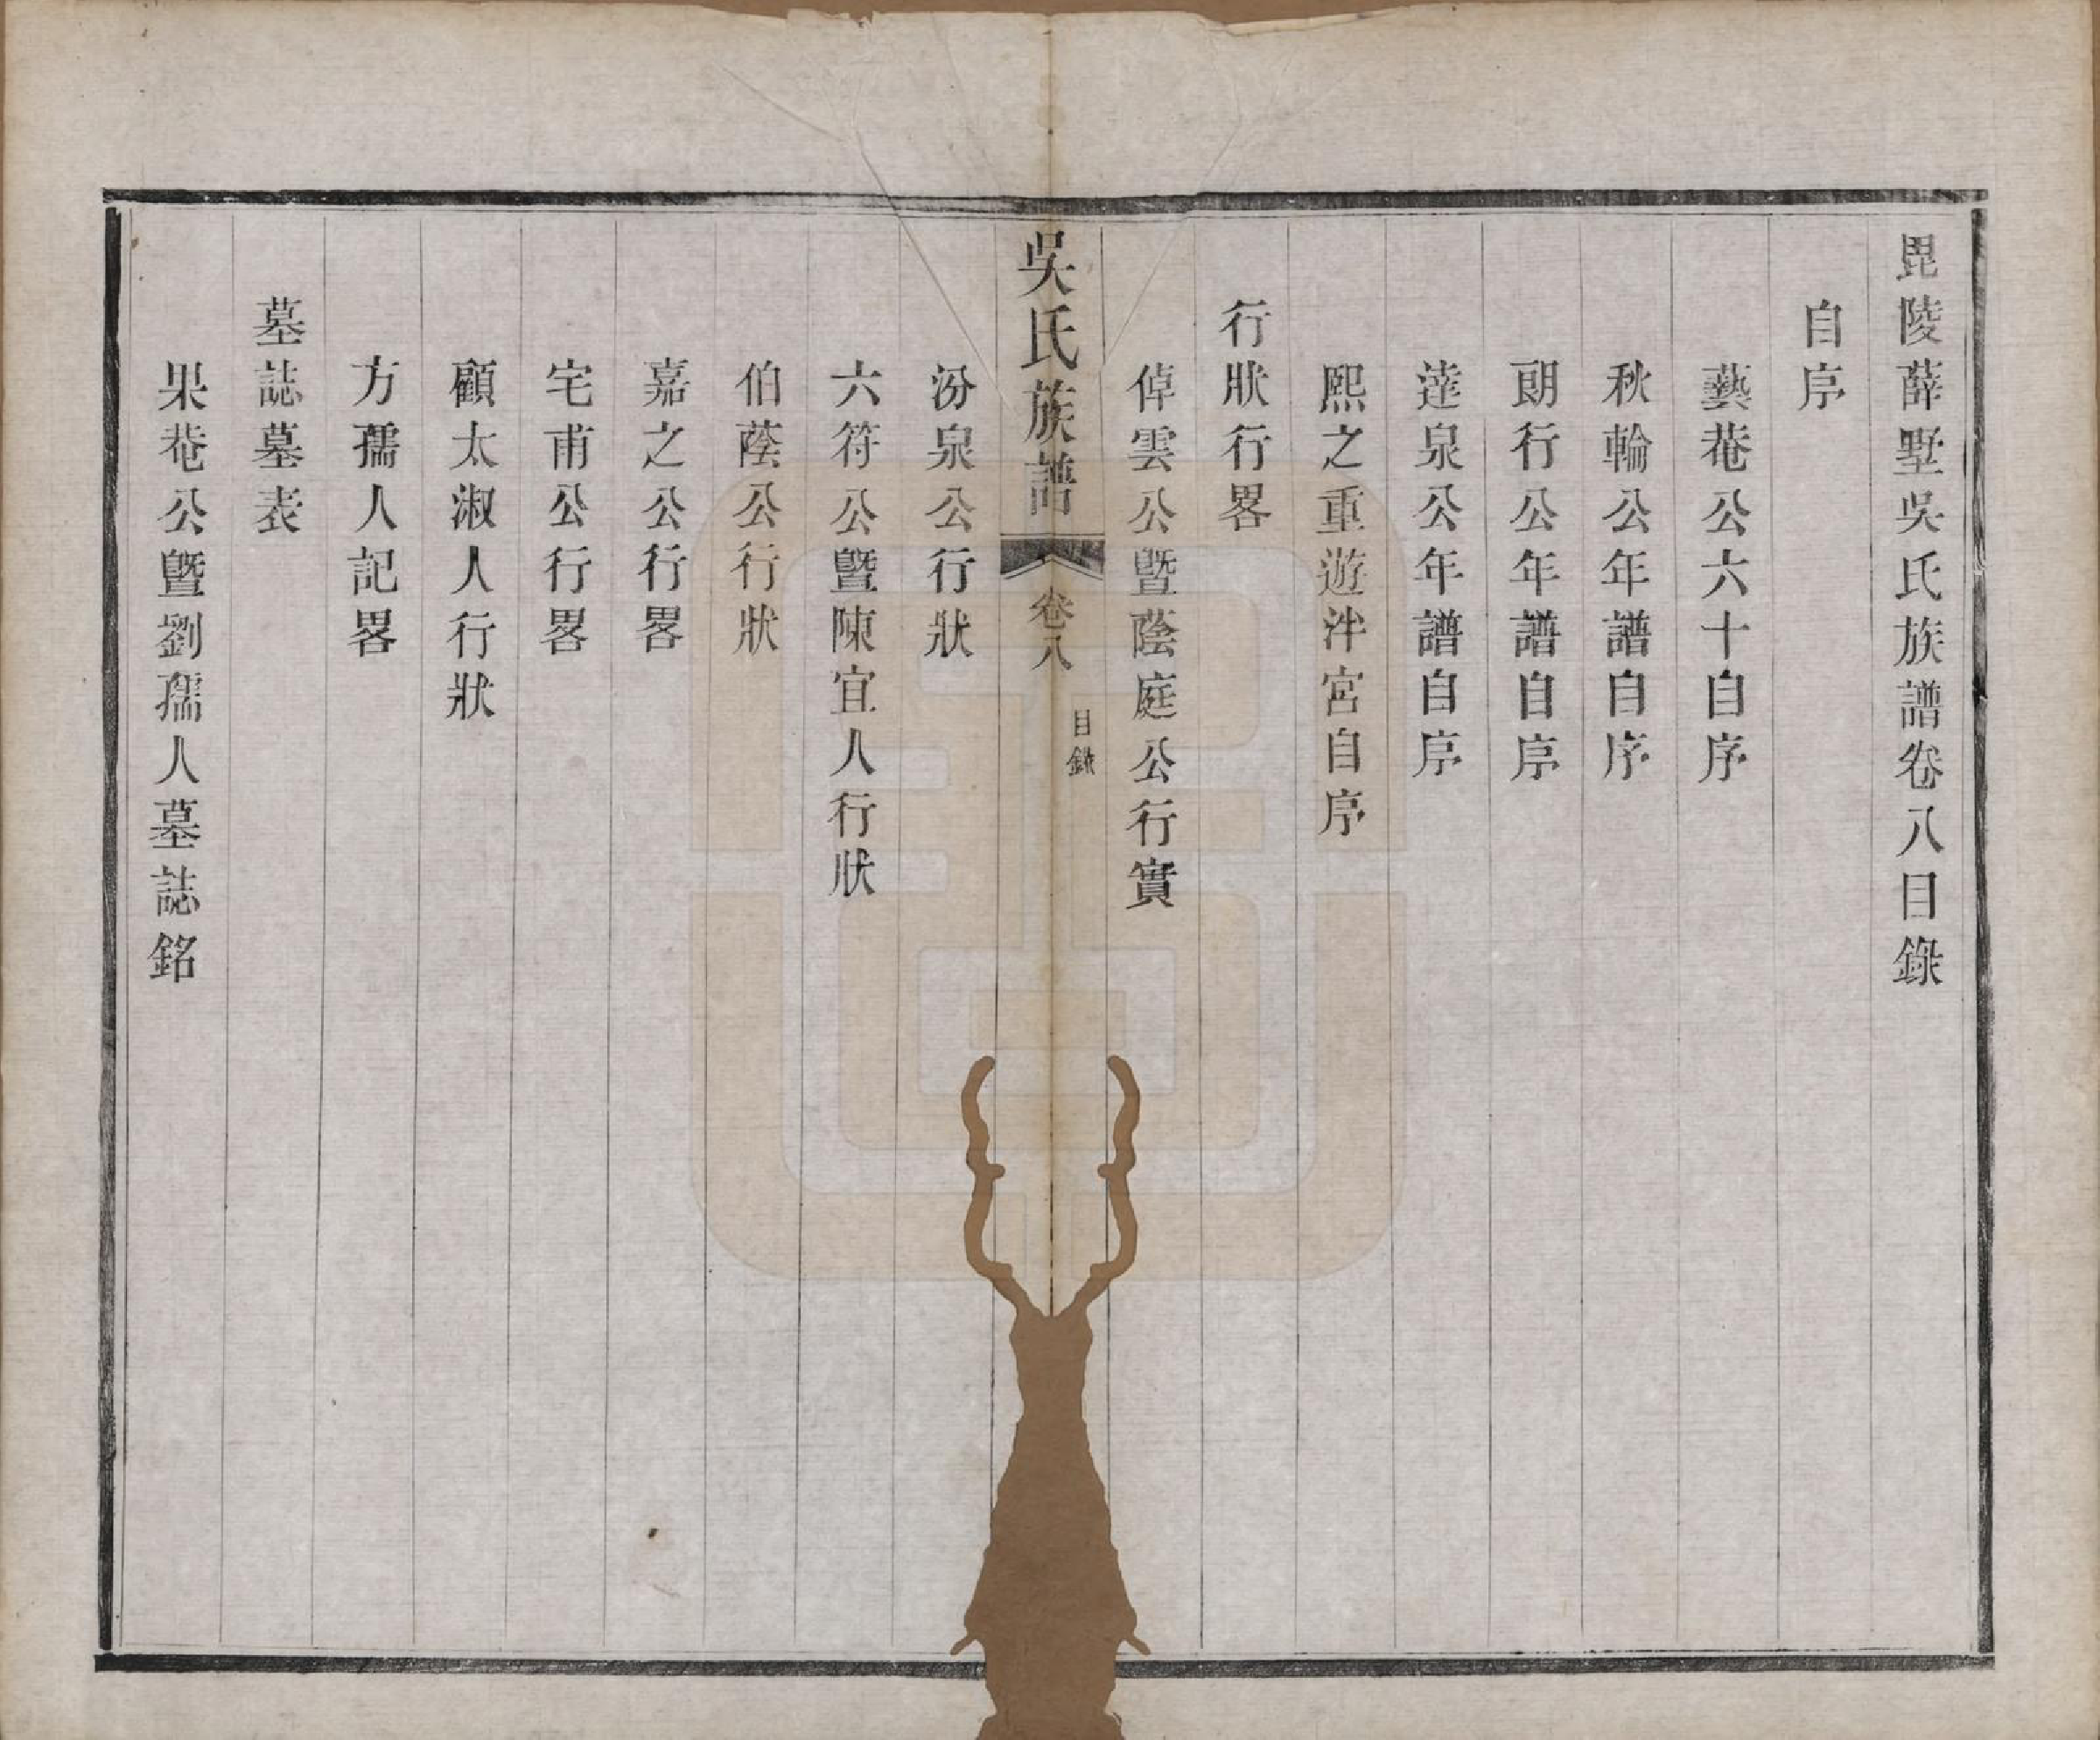 毘陵薛墅吳氏族譜卷八目錄
自序
藝菴公六十自序
秋輪公年譜自序
朗行公年譜自序
達泉公年譜自序
熙之重遊泮宮自序
行狀行畧
倬雲公曁蔭庭公行實
吳氏族譜
卷八
目錄
汾泉公行狀
六符公曁陳宜人行狀
伯蔭公行狀
嘉之公行畧
宅甫公行畧
顧太淑人行狀
方孺人記畧
墓誌墓表
果菴公曁劉孺人墓誌銘